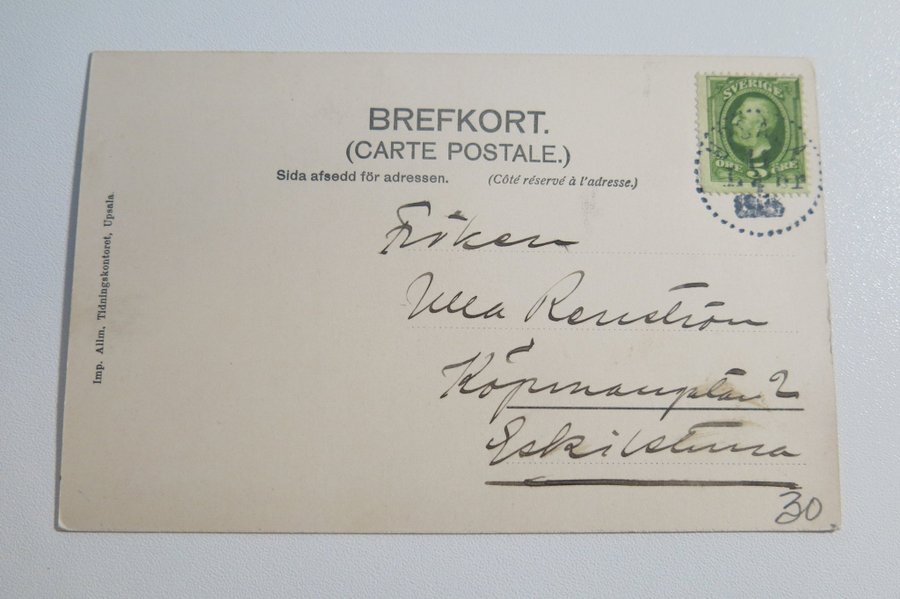 BREFKORT.
(CARTE POSTALE.)
Sida afsedd för adressen. (Côté réservé à l'adresse.)
SVERIGE
ÖRE 5 ÖRE
Fröken
Ulla Renström
Köpmangatan 2
Eskilstuna
30
Imp. Allm. Tidningskontoret, Upsala.